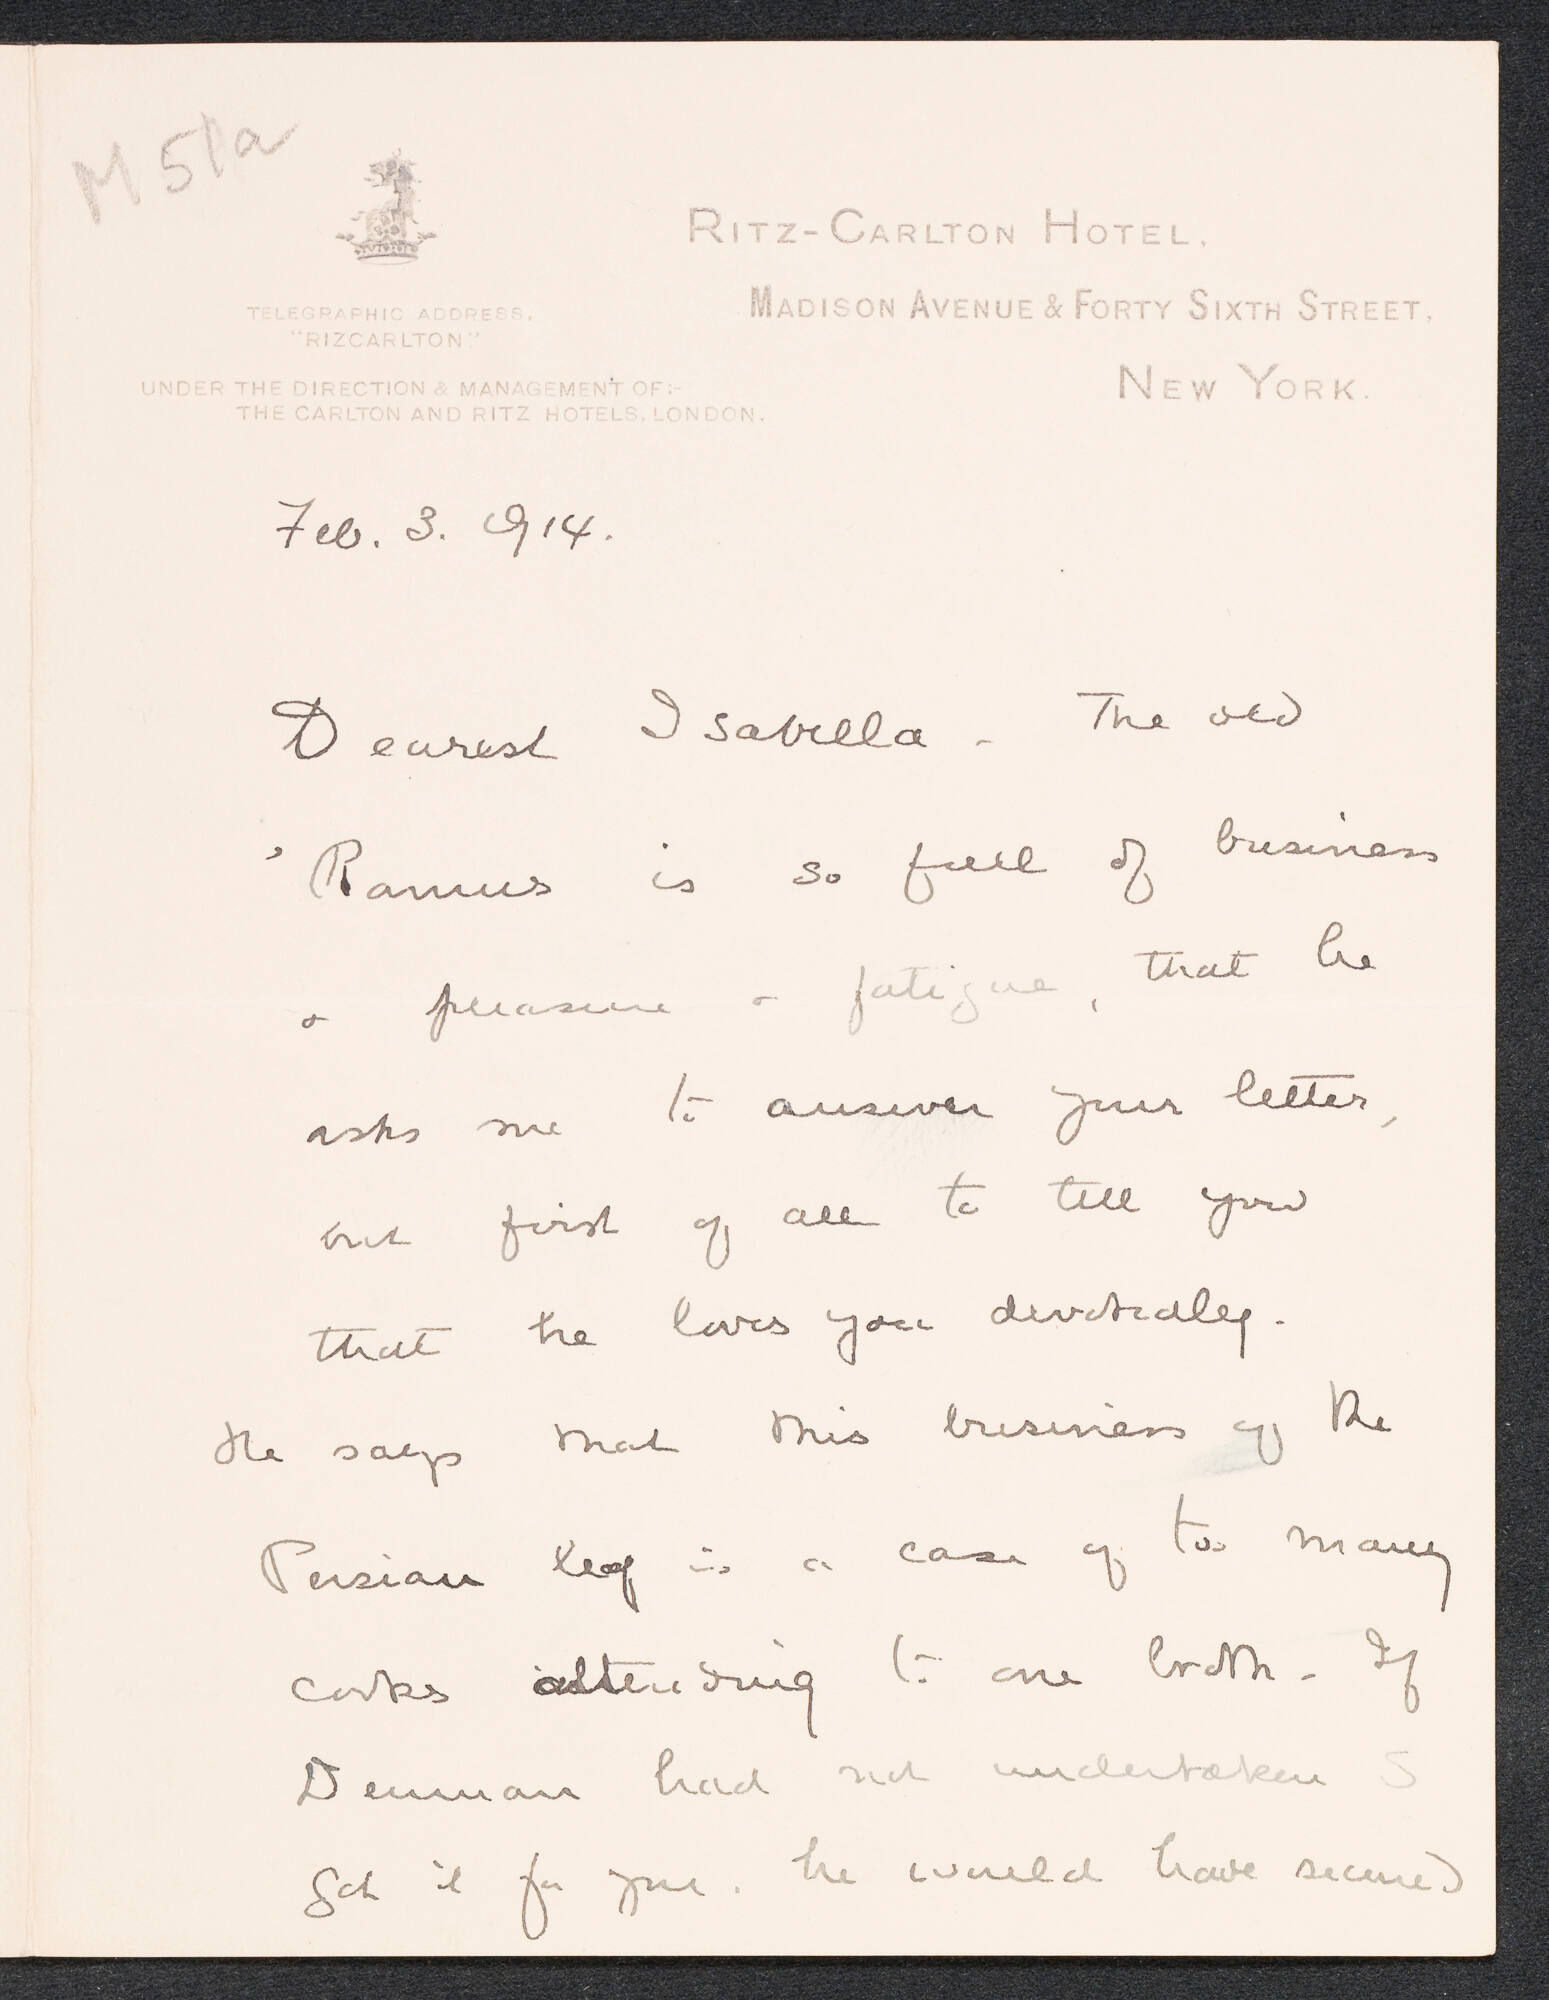 M 51a
RITZ-CARLTON HOTEL,
MADISON AVENUE & FORTY SIXTH STREET,
NEW YORK.
TELEGRAPHIC ADDRESS,
"RIZCARLTON"
UNDER THE DIRECTION & MANAGEMENT OF:-
THE CARLTON AND RITZ HOTELS, LONDON.
Feb. 3. 1914.
Dearest Isabella - The old
'Ramus is so full of business
& pleasure & fatigue, that he
asks me to answer your letter,
but first of all to tell you
that he loves you devotedly.
He says that this business of the
Persian leg is a case of too many
cooks attending to one broth - If
Denman had not undertaken to
get it for you, he would have secured